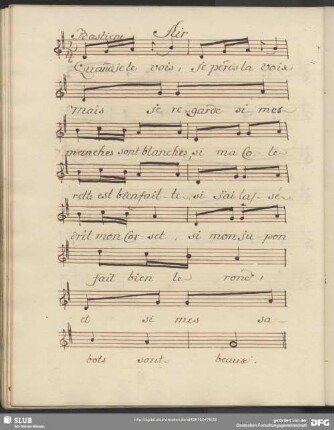 Bastiene Air
Quand je le vois, je pers la voix
mais je regarde si mes
manches sont blanches, si ma Cole
rette est bien faitte si j'ai lassé
et mon Corset, si mon jupon
fait bien le rond,
et si mes sa-
bots sont beaux.
SLUB
Wir führen Wissen.
gefördert von der
Deutschen Forschungsgemeinschaft
DFG